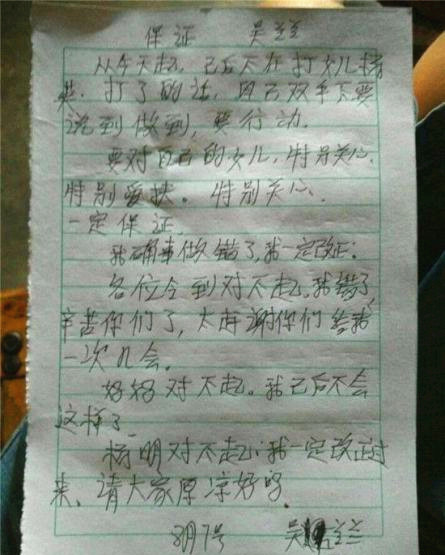 保证 吴兰兰
从今天起，已后不在打女儿杨
打了的话，自己双手不要
说到做到，要行动．
要对自己的女儿，特别关心．
特别爱扶。特别关心．
一定保证．
我确事做错了，我一定改正．
各位令到对不起，我错了，
辛苦你们了，太感谢你们给我
一次几会．
好好对不起。我已后不会
这样了．
杨明对不起．我一定改正过
来．请大家原凉好吗．
8月7号 吴兰兰